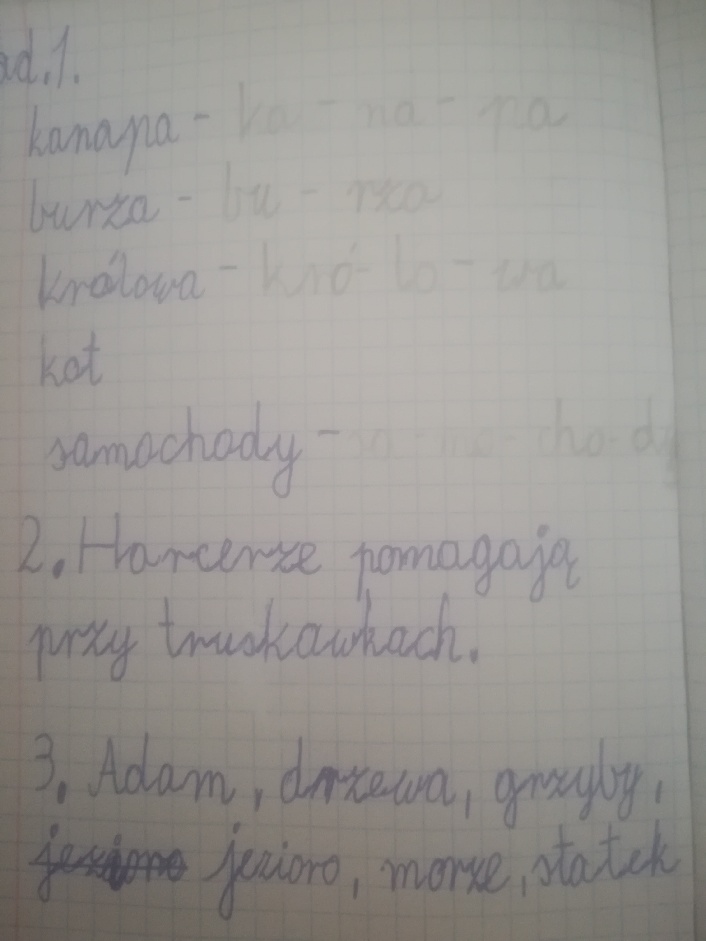 ad.1.
kanapa - ka - na - pa
burza - bu - rza
królowa - kró - lo - wa
kot
samochody - sa - mo - cho - dy
2. Harcerze pomagają
przy truskawkach.
3. Adam, drzewa, grzyby,
jezioro jezioro, morze, statek